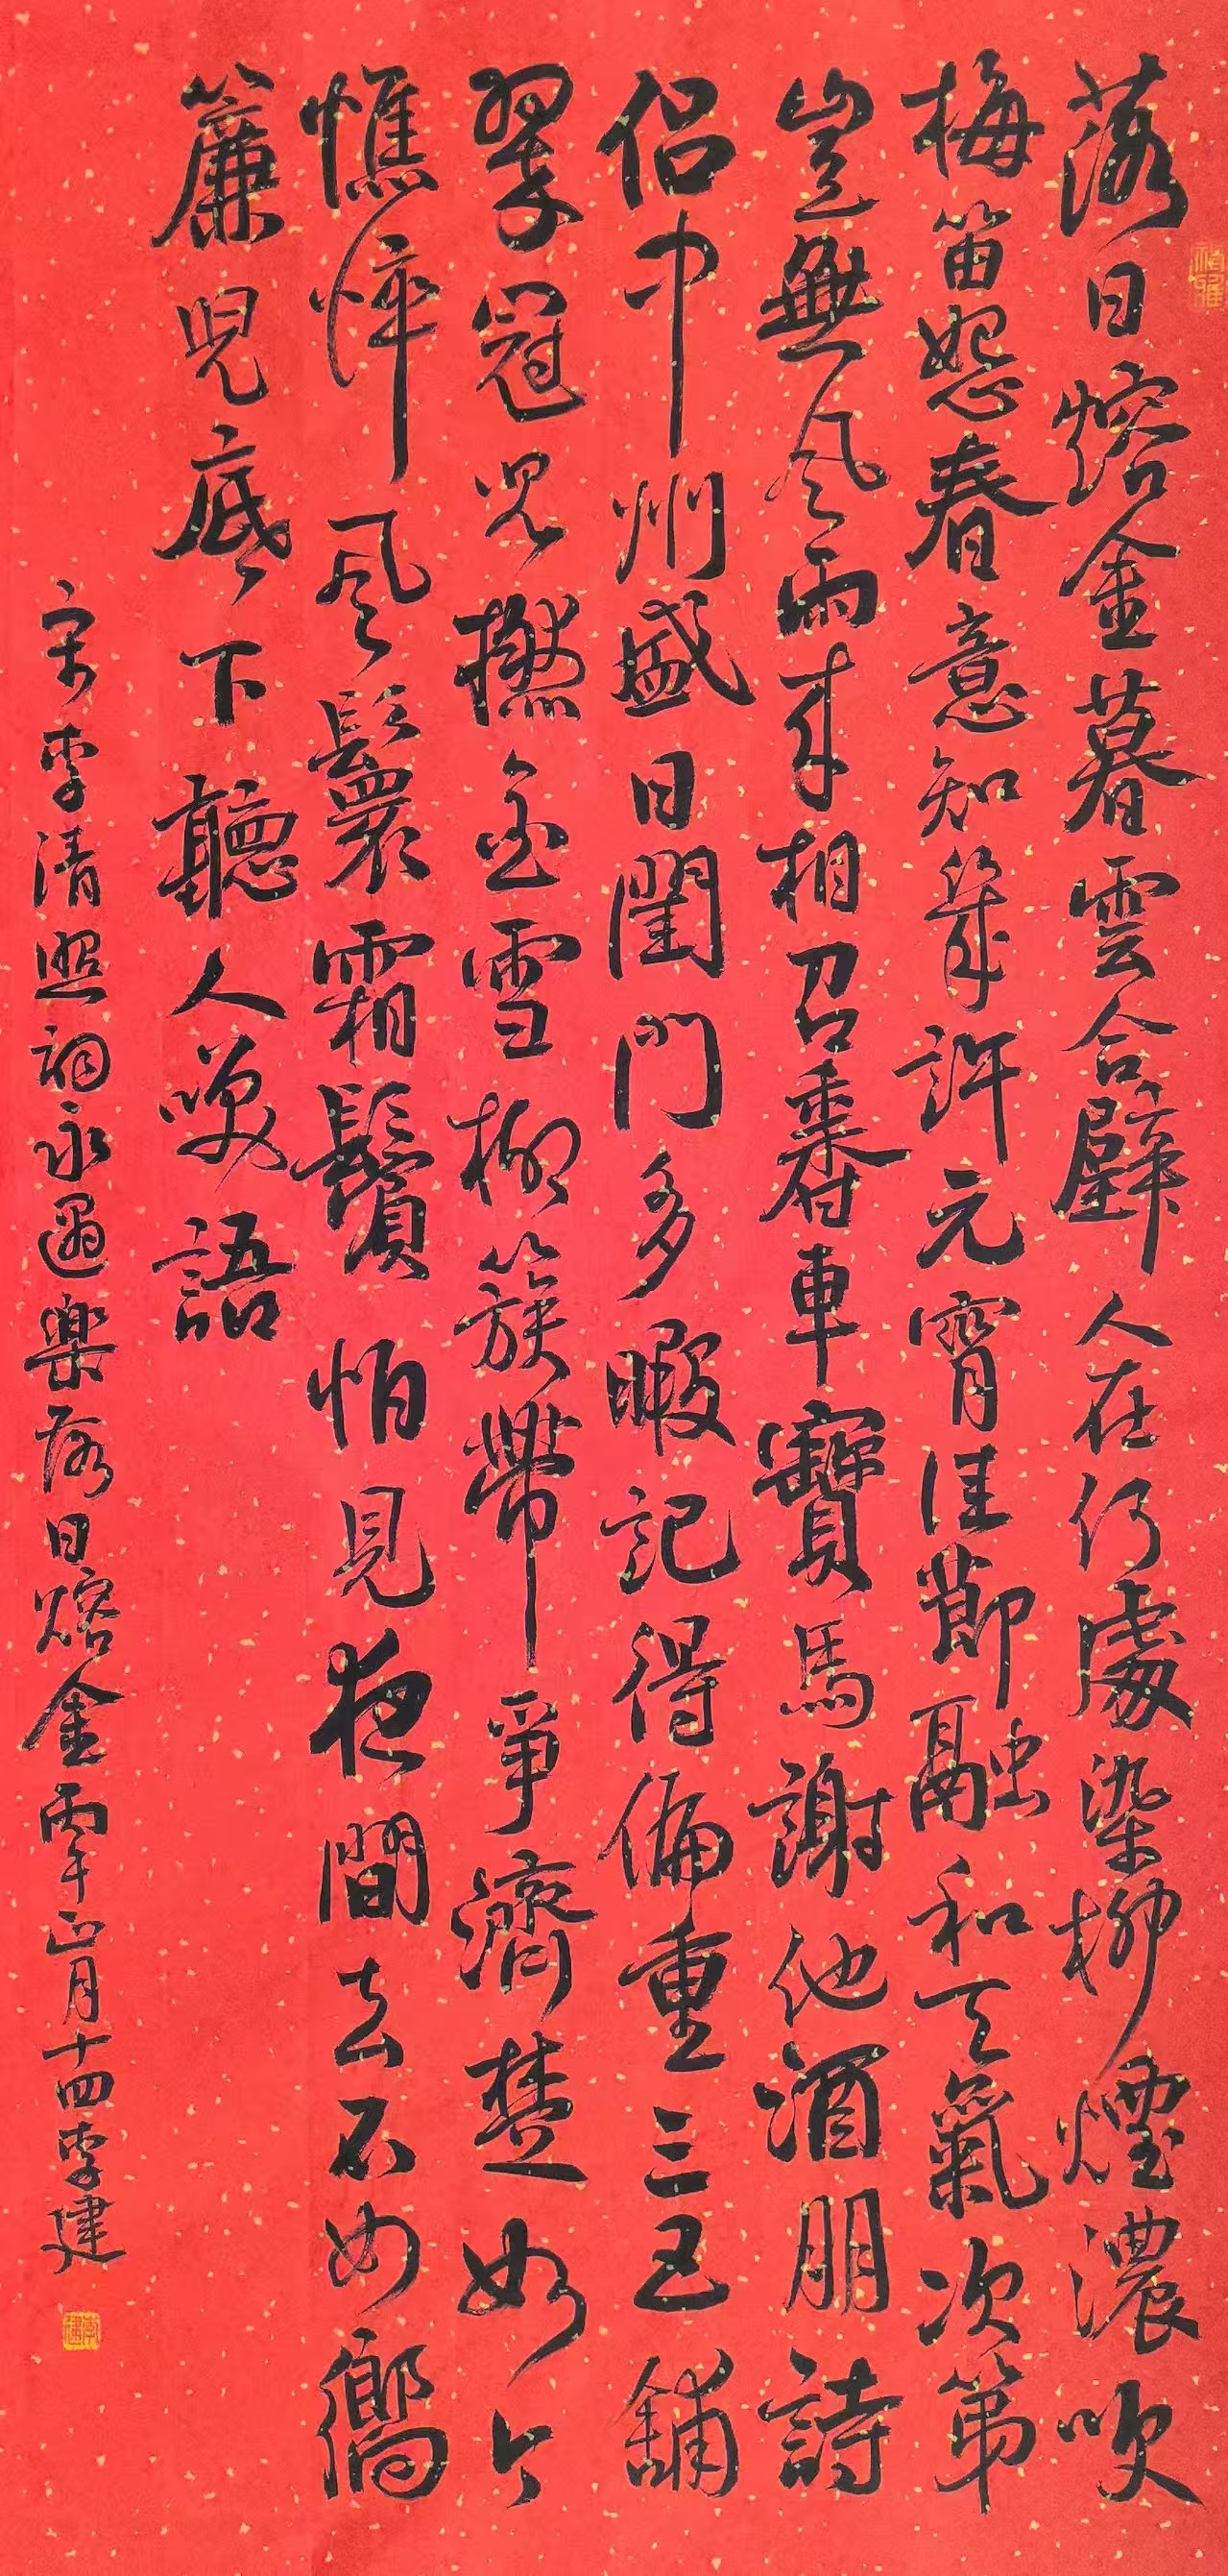 落日熔金暮雲合璧人在何處染柳煙濃吹
梅笛怨春意知幾許元宵佳節融和天氣次第
豈無風雨來相召香車寶馬謝他酒朋詩
侶中州盛日閨門多暇記得偏重三五鋪
翠冠兒撚金雪柳簇帶爭濟楚如今
憔悴風鬟霜鬢怕見夜間去不如嚮
簾兒底下聽人笑語
宋李清照詞永遇樂落日熔金丙午正月十四李建
李建